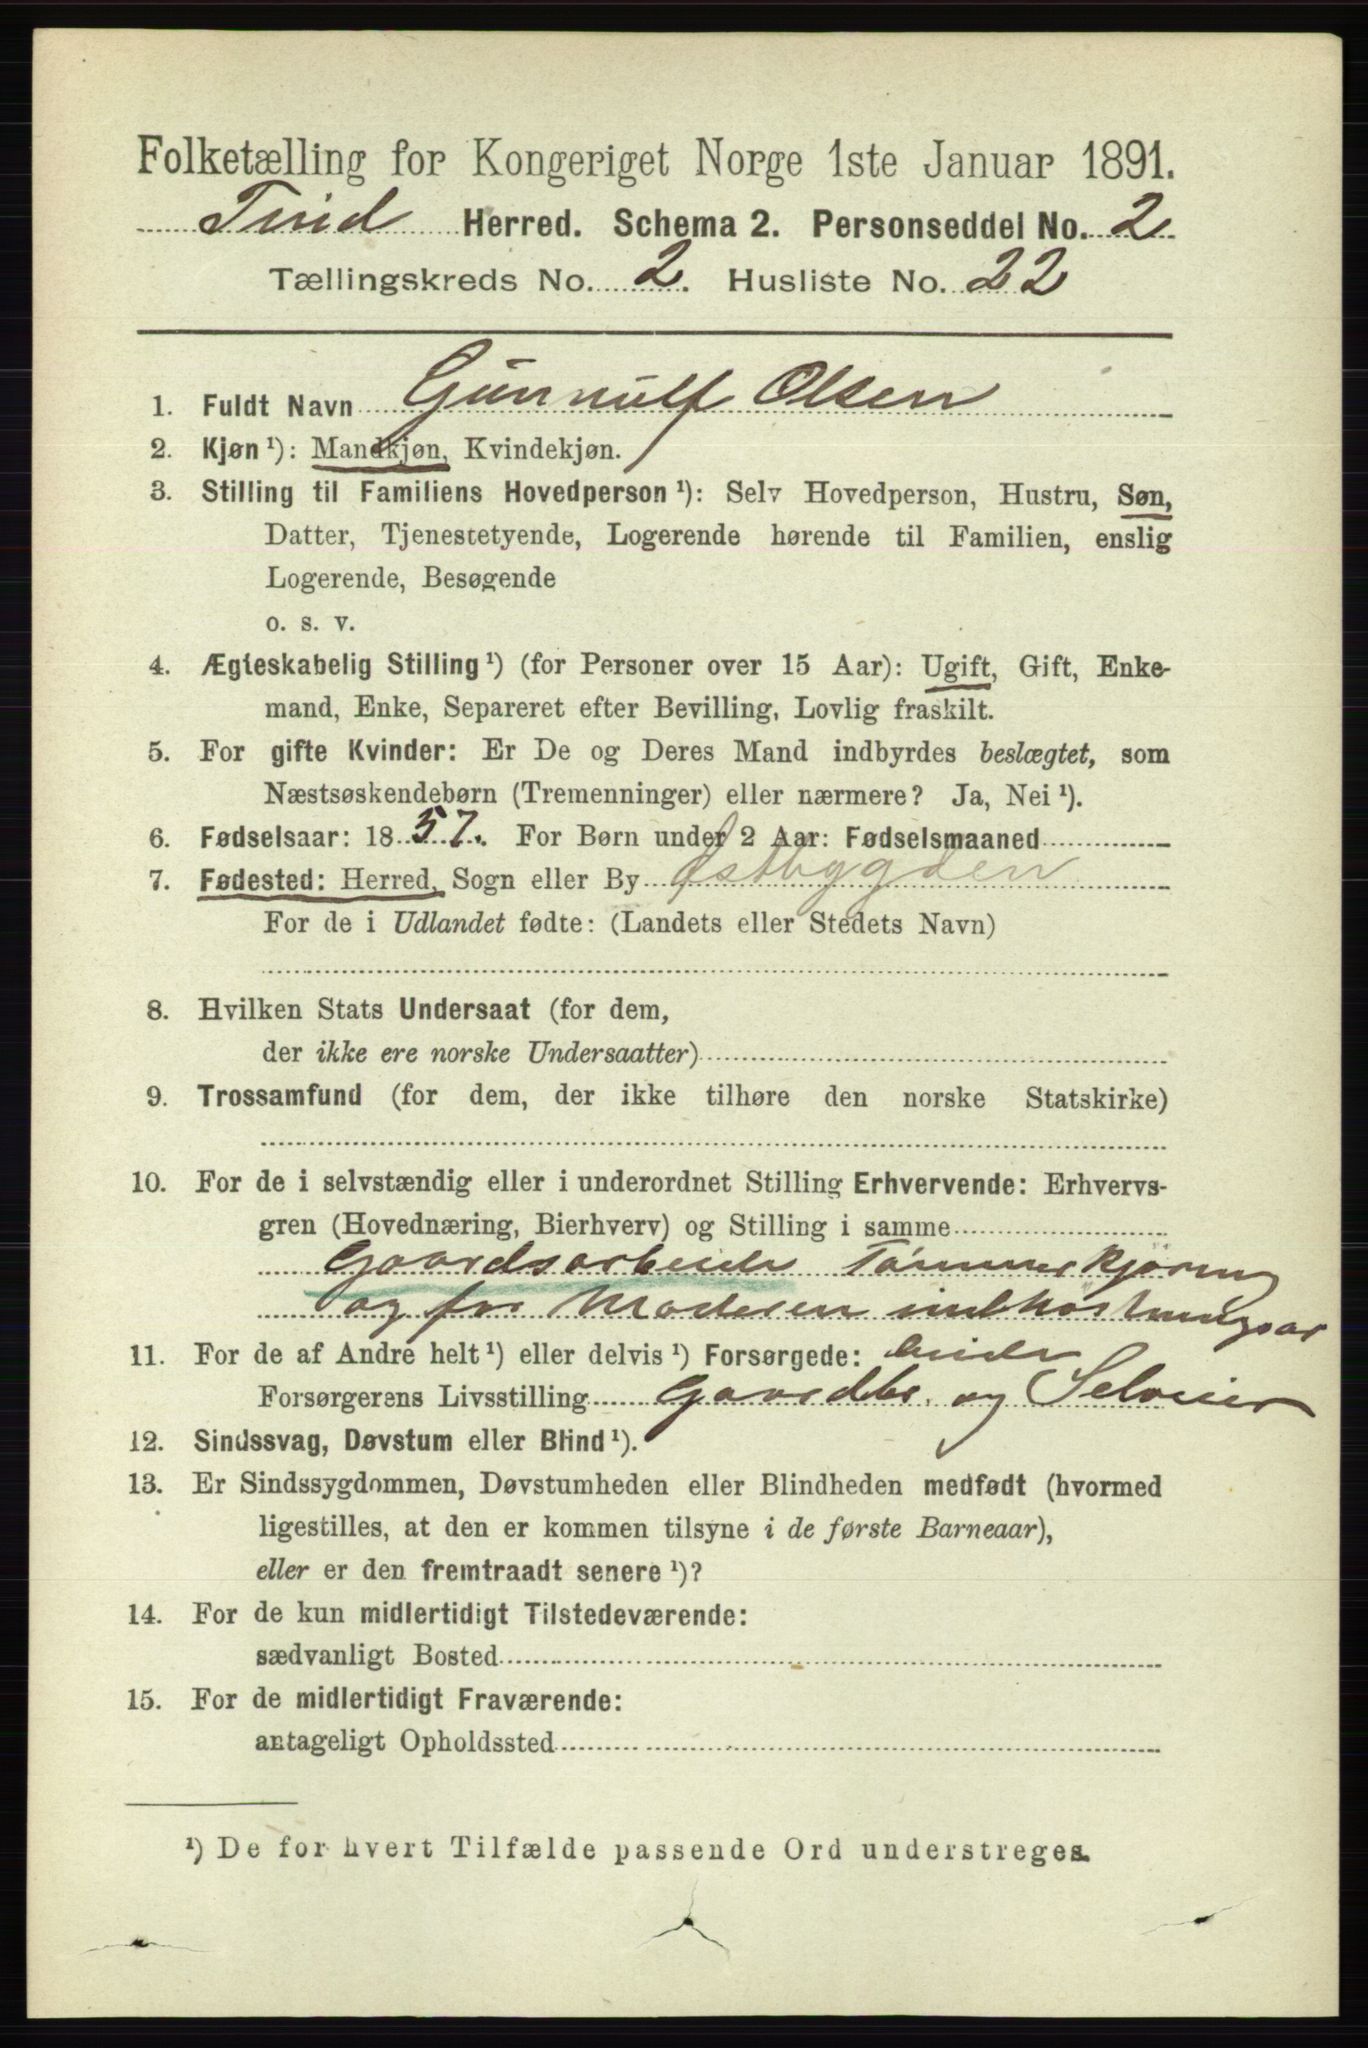 Folketælling for Kongeriget Norge 1ste Januar 1891.
Tind Herred. Schema 2. Personseddel No. 2
Tællingskreds No. 2. Husliste No. 22
1. Fuldt Navn Gunnulf Olsen
2. Kjøn ¹): Mandkjøn, Kvindekjøn.
3. Stilling til Familiens Hovedperson ¹): Selv Hovedperson, Hustru, Søn,
Datter, Tjenestetyende, Logerende hørende til Familien, enslig
Logerende, Besøgende
o. s. v.
4. Ægteskabelig Stilling ¹) (for Personer over 15 Aar): Ugift, Gift, Enke-
mand, Enke, Separeret efter Bevilling, Lovlig fraskilt.
5. For gifte Kvinder: Er De og Deres Mand indbyrdes beslægtet, som
Næstsøskendebørn (Tremenninger) eller nærmere? Ja, Nei ¹).
6. Fødselsaar: 1857. For Børn under 2 Aar: Fødselsmaaned
7. Fødested: Herred, Sogn eller By Østbygden
For de i Udlandet fødte: (Landets eller Stedets Navn)
8. Hvilken Stats Undersaat (for dem,
der ikke ere norske Undersaatter)
9. Trossamfund (for dem, der ikke tilhøre den norske Statskirke)
10. For de i selvstændig eller i underordnet Stilling Erhvervende: Erhvervs-
gren (Hovednæring, Bierhverv) og Stilling i samme
Gaardsarbeide Tømmerkjøring
og for Moderen
11. For de af Andre helt ¹) eller delvis ¹) Forsørgede:
Forsørgerens Livsstilling Gaardbr. og Selveier
12. Sindssvag, Døvstum eller Blind ¹).
13. Er Sindssygdommen, Døvstumheden eller Blindheden medfødt (hvormed
ligestilles, at den er kommen tilsyne i de første Barneaar),
eller er den fremtraadt senere ¹)?
14. For de kun midlertidigt Tilstedeværende:
sædvanligt Bosted
15. For de midlertidigt Fraværende:
antageligt Opholdssted
¹) De for hvert Tilfælde passende Ord understreges.